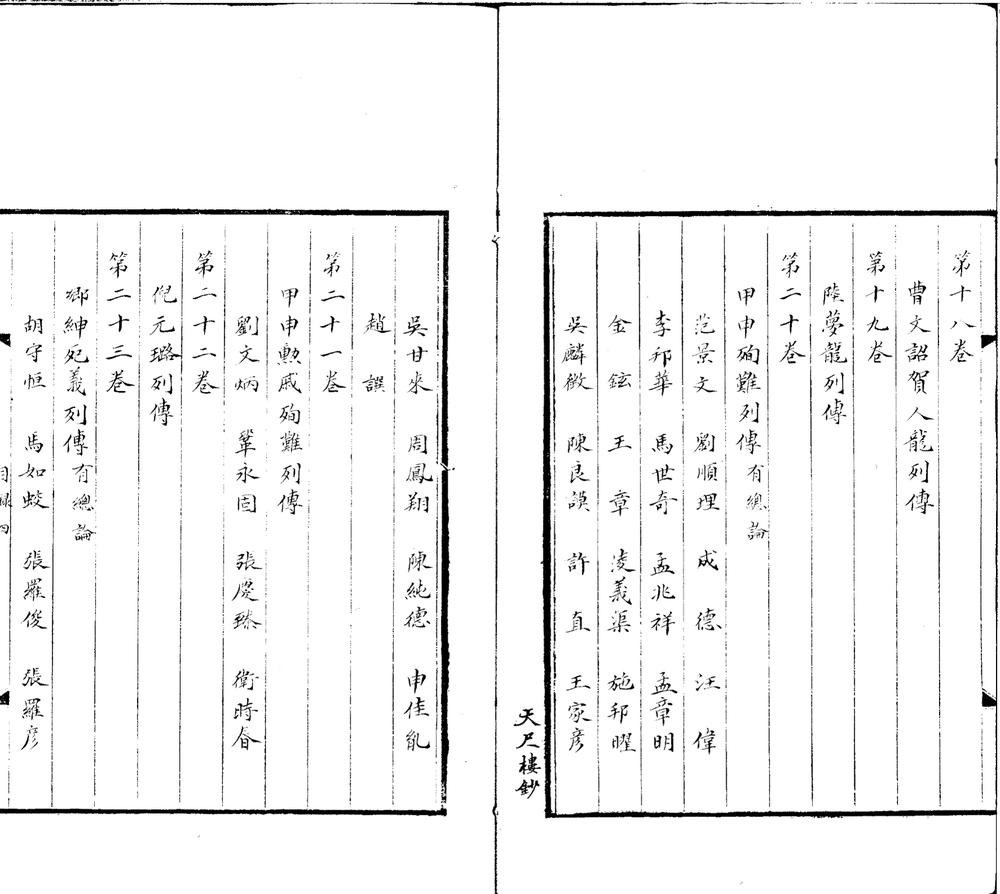 第十八卷
曹文詔賀人龍列傳
第十九卷
陸夢龍列傳
第二十卷
甲申殉難列傳有總論
范景文 劉順理 成德 汪偉
李邦華 馬世奇 孟兆祥 孟章明
金鉉 王章 淩義渠 施邦曜
吳麟徵 陳良謨 許直 王家彥
天尺樓鈔
吳甘來 周鳳翔 陳純德 申佳胤
趙譔
第二十一卷
甲申勳戚殉難列傳
劉文炳 鞏永固 張慶臻 衛時春
第二十二卷
倪元璐列傳
第二十三卷
鄉紳死義列傳有總論
胡守恒 馬如蛟 張羅俊 張羅彥
目錄四